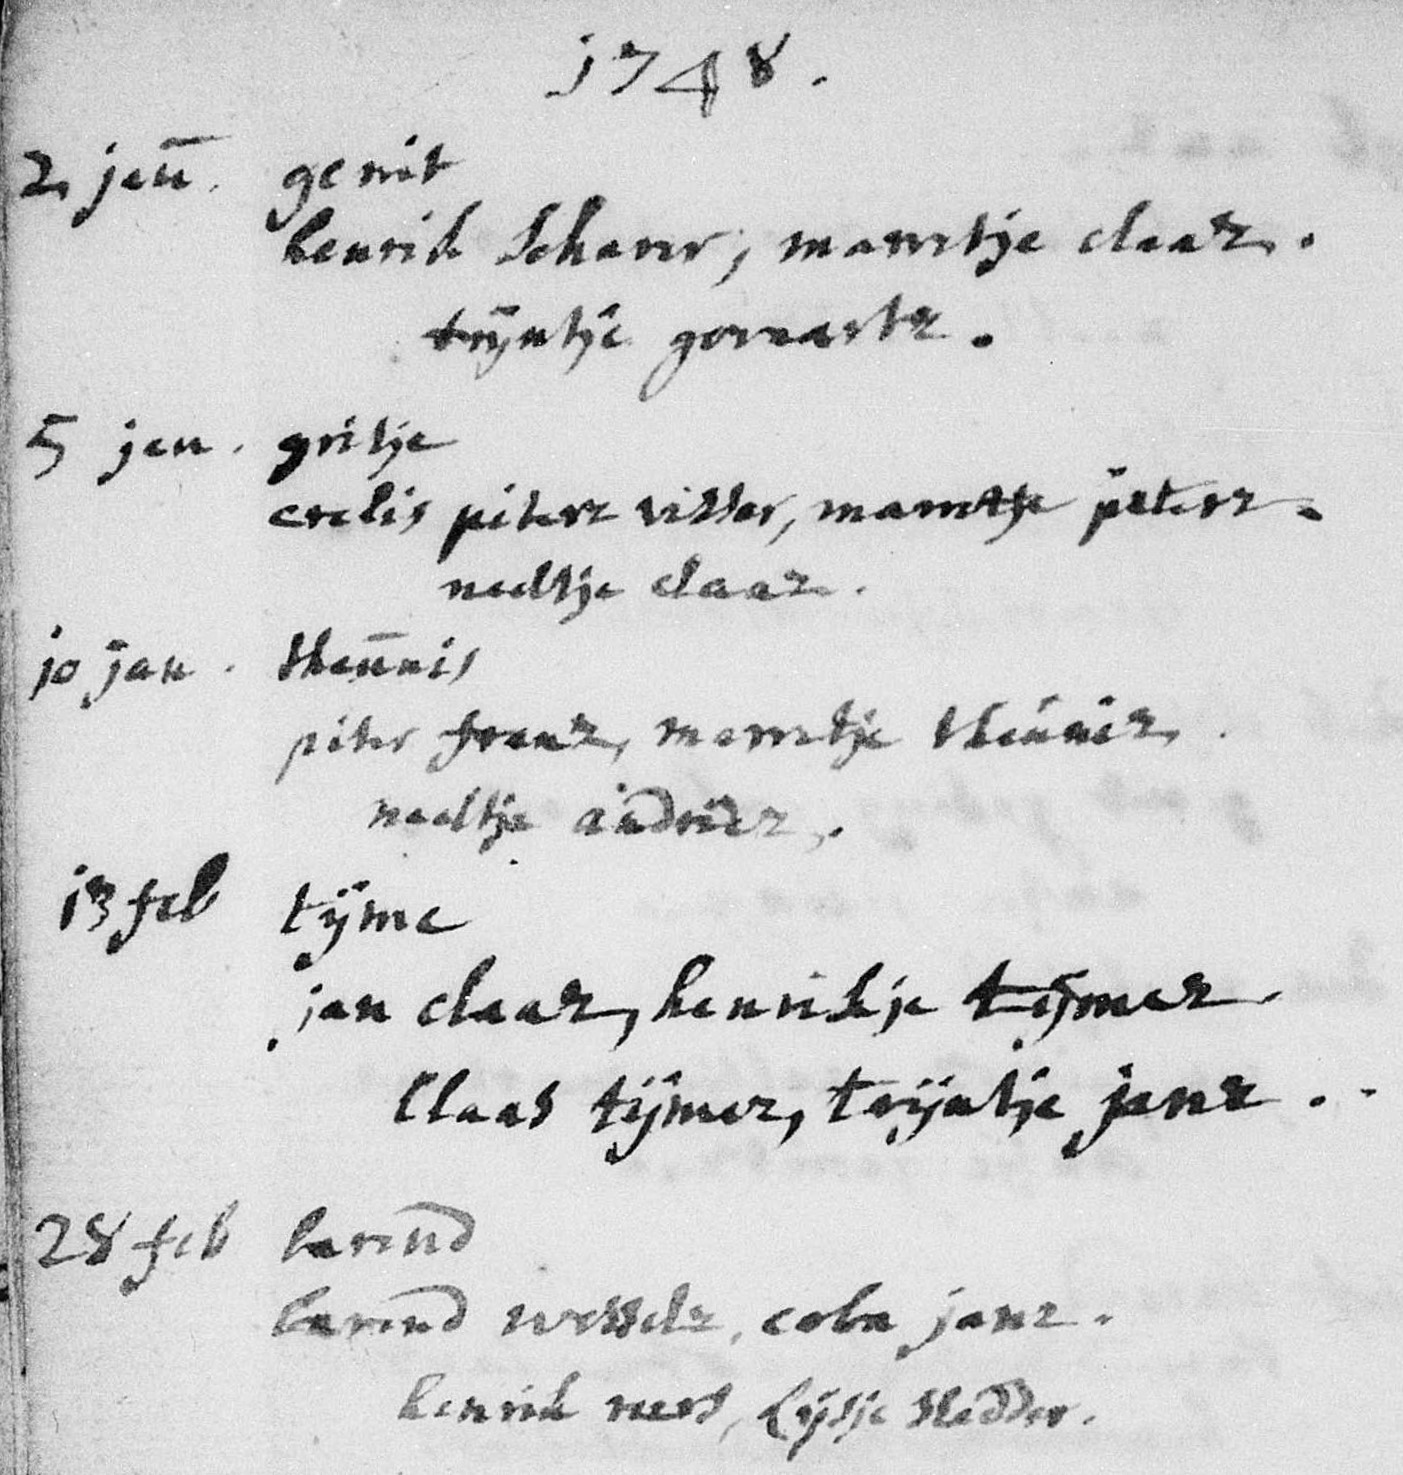 1748.
2 jan. gerrit
henrik schaver, marretje claaz.
trijntje govaartz.
5 jan. gritje
crelis piterz visser, marretje piterz.
neeltje claaz.
10 jan. theunis
piter franz, marretje theunisz.
neeltje andriesz.
13 feb tijme
jan claaz, henrikje tijmez.
Claas tijmez, trijntje janz.
28 feb barend
barend wesselz, coba janz.
henrik mees, Lijsje